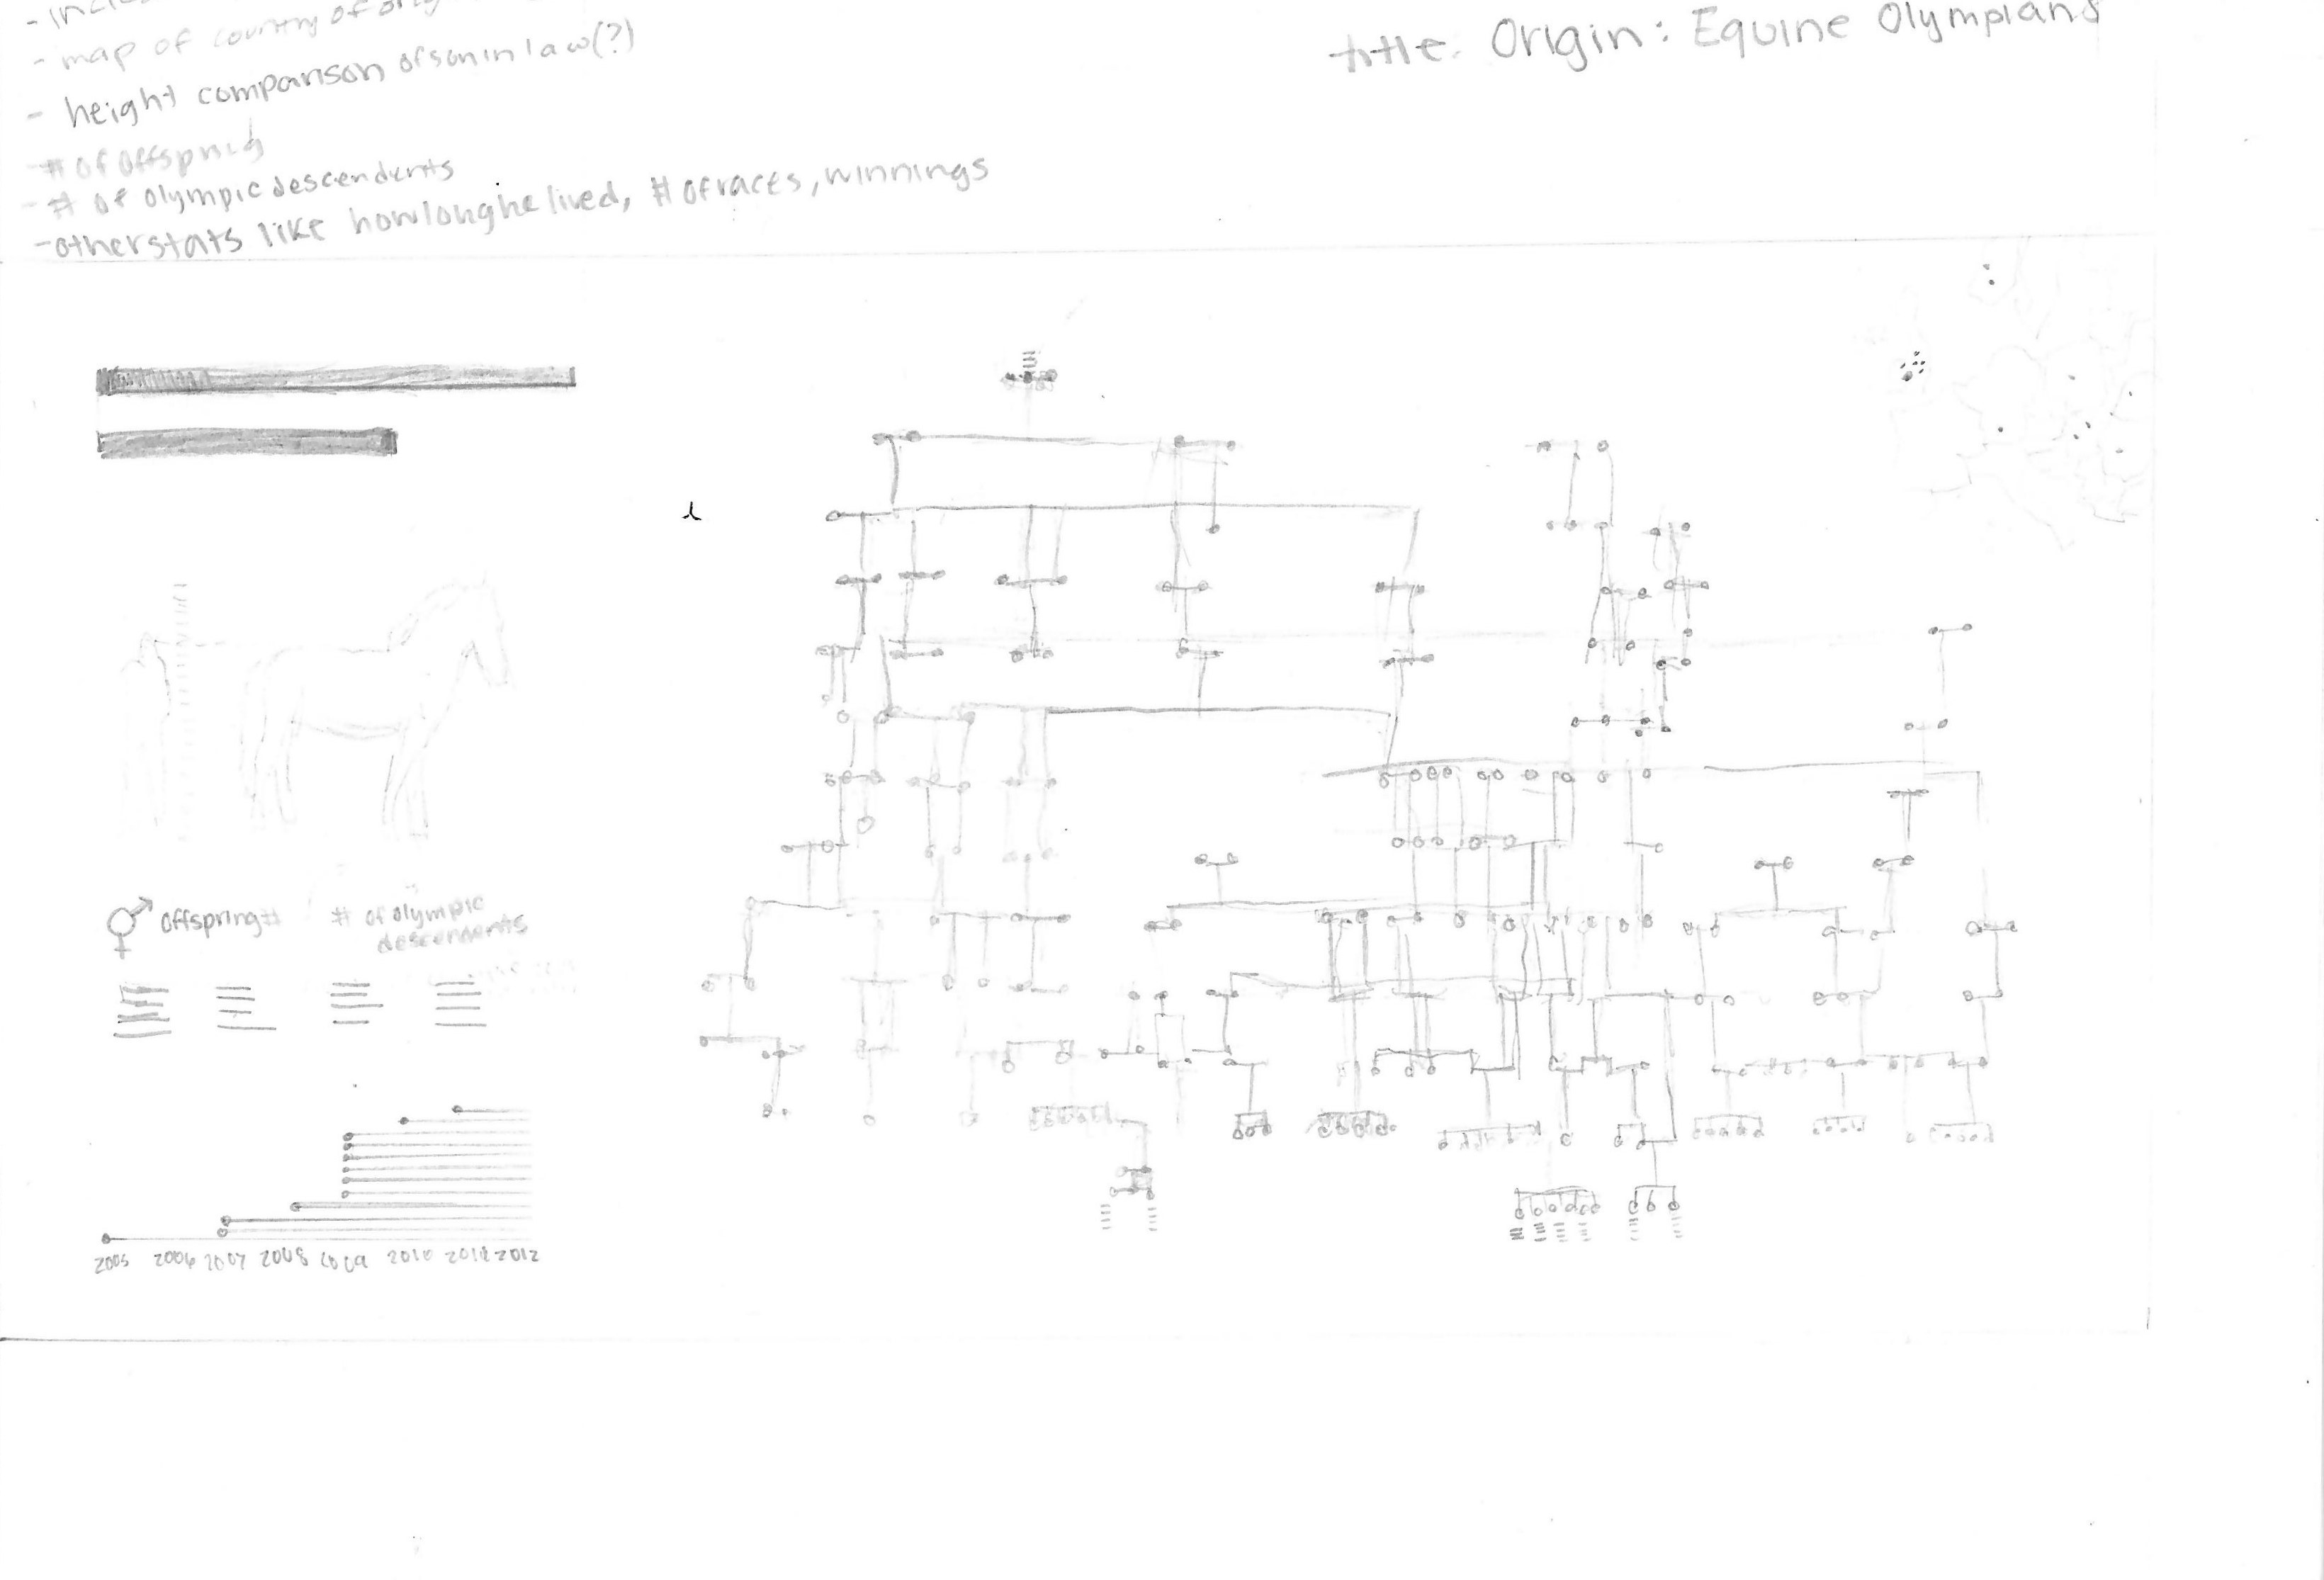 - map of country of
- height comparison of son in law(?)
- # of offspring
- # of olympic descendents
- other stats like how long he lived, # of races, winnings
title: Origin: Equine Olympians
offspring #
# of olympic
descendents
2005 2006 2007 2008 2009 2010 2011 2012